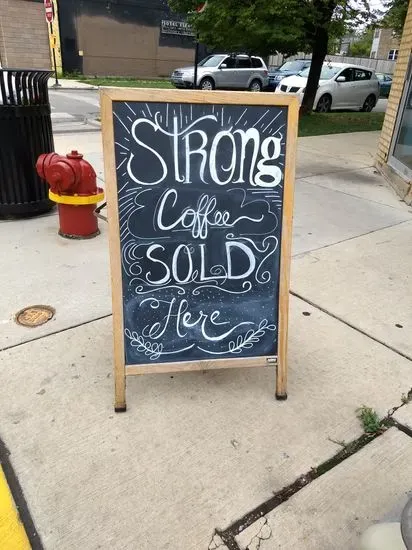 STRONG
Coffee
SOLD
Here